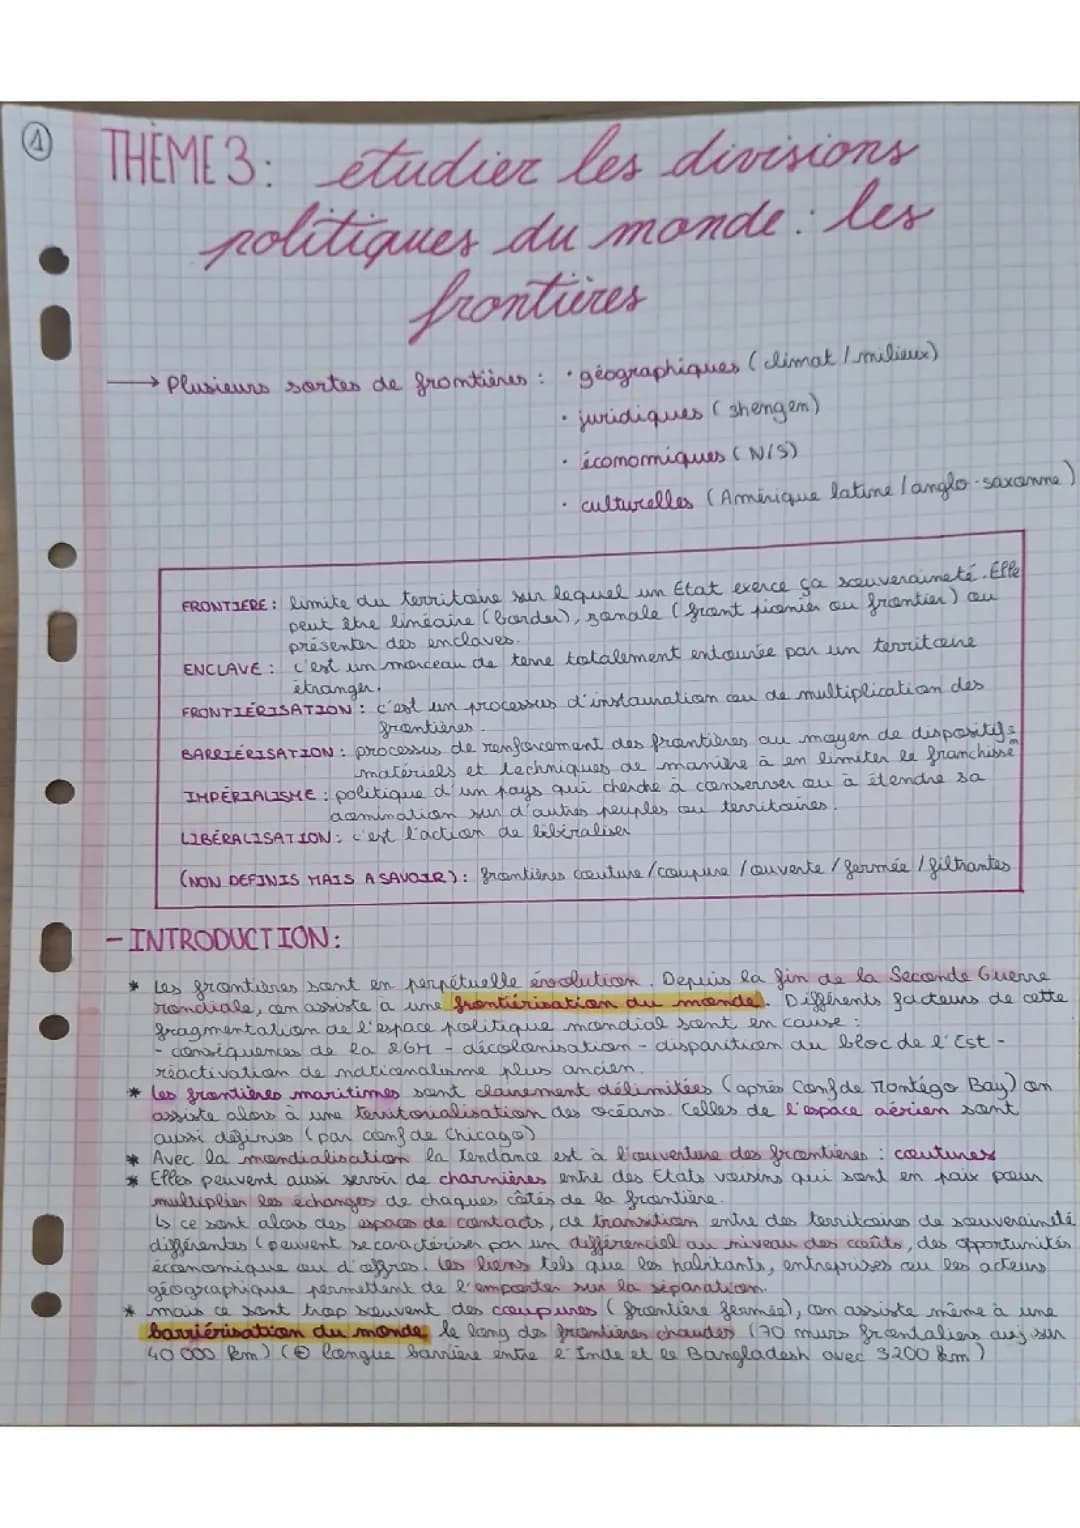 1
THÈME 3: étudier les divisions
politiques du monde : les
frontières
→ Plusieurs sortes de frontières : · géographiques (climat / milieux)
· juridiques (shengen)
· économiques (N/S)
· culturelles (Amérique latine / anglo-saxonne)
FRONTIERE : limite du territoire sur lequel un Etat exerce ça souveraineté. Elle
peut être linéaire (border), zonale (front pionier ou frontier) ou
présenter des enclaves.
ENCLAVE : c'est un morceau de terre totalement entourée par un territoire
étranger.
FRONTIÉRISATION : c'est un processus d'instauration ou de multiplication des
frontières.
BARRIÉRISATION : processus de renforcement des frontières au moyen de dispositifs
matériels et techniques de manière à en limiter le franchissem
IMPÉRIALISME : politique d'un pays qui cherche à conserver ou à étendre sa
domination sur d'autres peuples ou territoires.
LIBÉRALISATION : c'est l'action de libéraliser
(NON DEFINIS MAIS A SAVOIR) : frontières couture / coupure / ouverte / fermée / filtrantes
- INTRODUCTION :
* Les frontières sont en perpétuelle évolution. Depuis la fin de la Seconde Guerre
mondiale, on assiste à une frontiérisation du monde. Différents facteurs de cette
fragmentation de l'espace politique mondial sont en cause :
- conséquences de la 2GM - décolonisation - disparition du bloc de l'Est -
réactivation de nationalisme plus ancien.
* les frontières maritimes sont clairement délimitées (après Conf de Montégo Bay) on
assiste alors à une territorialisation des océans. Celles de l'espace aérien sont
aussi définies (par conf de Chicago)
* Avec la mondialisation la tendance est à l'ouverture des frontières : coutures
* Elles peuvent aussi servir de charnières entre des Etats voisins qui sont en paix pour
multiplier les échanges de chaques côtés de la frontière.
↳ ce sont alors des espaces de contacts, de transition entre des territoires de souveraineté
différentes (peuvent se caractériser par un différenciel au niveau des coûts, des opportunités
économique ou d'offres. les liens tels que les habitants, entreprises ou les acteurs
géographique permettent de l'emporter sur la séparation.
* mais ce sont trop souvent des coupures (frontière fermée), on assiste même à une
barriérisation du monde le long des frontières chaudes (70 murs frontaliers auj sur
40 000 km) (⊕ longue barrière entre l'Inde et le Bangladesh avec 3200 km)